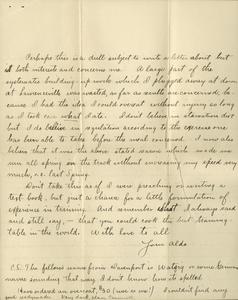 Perhaps this is a dull subject to write a letter about but
it both interests and concerns me. A large part of the
systematic building up work which I plugged away at down
at Lawrenceville was wasted, as far as results are concerned, be-
cause I had the idea I could overeat without injury so long
as I took care what I ate. I don't believe in starvation diet
but I do believe in regulation according to the exercise one
has been able to take before the meal concerned. I now also
believe that it was the above stated reason which made me
run all spring on the track without increasing my speed very
much, i.e. last spring.
Don't take this as if I were preaching or writing a
text book, but just a chance for a little formulation of
experience in training. And remember that I always said
and still say, that you could the best training-
table in the world. With love to all
Your Aldo
P.S. The fellows name from Davenport is or some German
name something that way I don't know how its spelled.
Have ordered an overcoat, $30 I couldn't find any